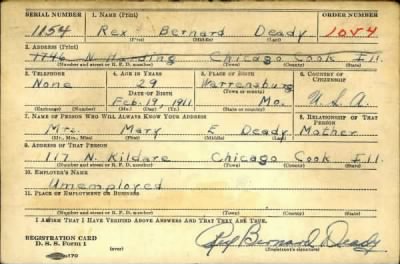 SERIAL NUMBER 1. NAME (Print) ORDER NUMBER
1154 Rex Bernard Deady 1044
(First) (Middle) (Last)
2. ADDRESS (Print)
1746 N Harding Chicago Cook Ill.
(Number and street or R. F. D. number) (Town) (County) (State)
3. TELEPHONE 4. AGE IN YEARS 5. PLACE OF BIRTH 6. COUNTRY OF CITIZENSHIP
None 29 Warrensburg
DATE OF BIRTH (Town or county)
Feb. 19, 1911 Mo. U.S.A.
(Exchange) (Number) (Mo.) (Day) (Yr.) (State or country)
7. NAME OF PERSON WHO WILL ALWAYS KNOW YOUR ADDRESS 8. RELATIONSHIP OF THAT PERSON
Mrs. Mary E Deady Mother
(Mr., Mrs., Miss) (First) (Middle) (Last)
9. ADDRESS OF THAT PERSON
117 N. Kildare Chicago Cook Ill.
(Number and street or R. F. D. number) (Town) (County) (State)
10. EMPLOYER'S NAME
Unemployed
11. PLACE OF EMPLOYMENT OR BUSINESS
(Number and street or R. F. D. number) (Town) (County) (State)
I AFFIRM THAT I HAVE VERIFIED ABOVE ANSWERS AND THAT THEY ARE TRUE.
REGISTRATION CARD
D. S. S. Form 1 (over) Rex Bernard Deady
(Registrant's signature)